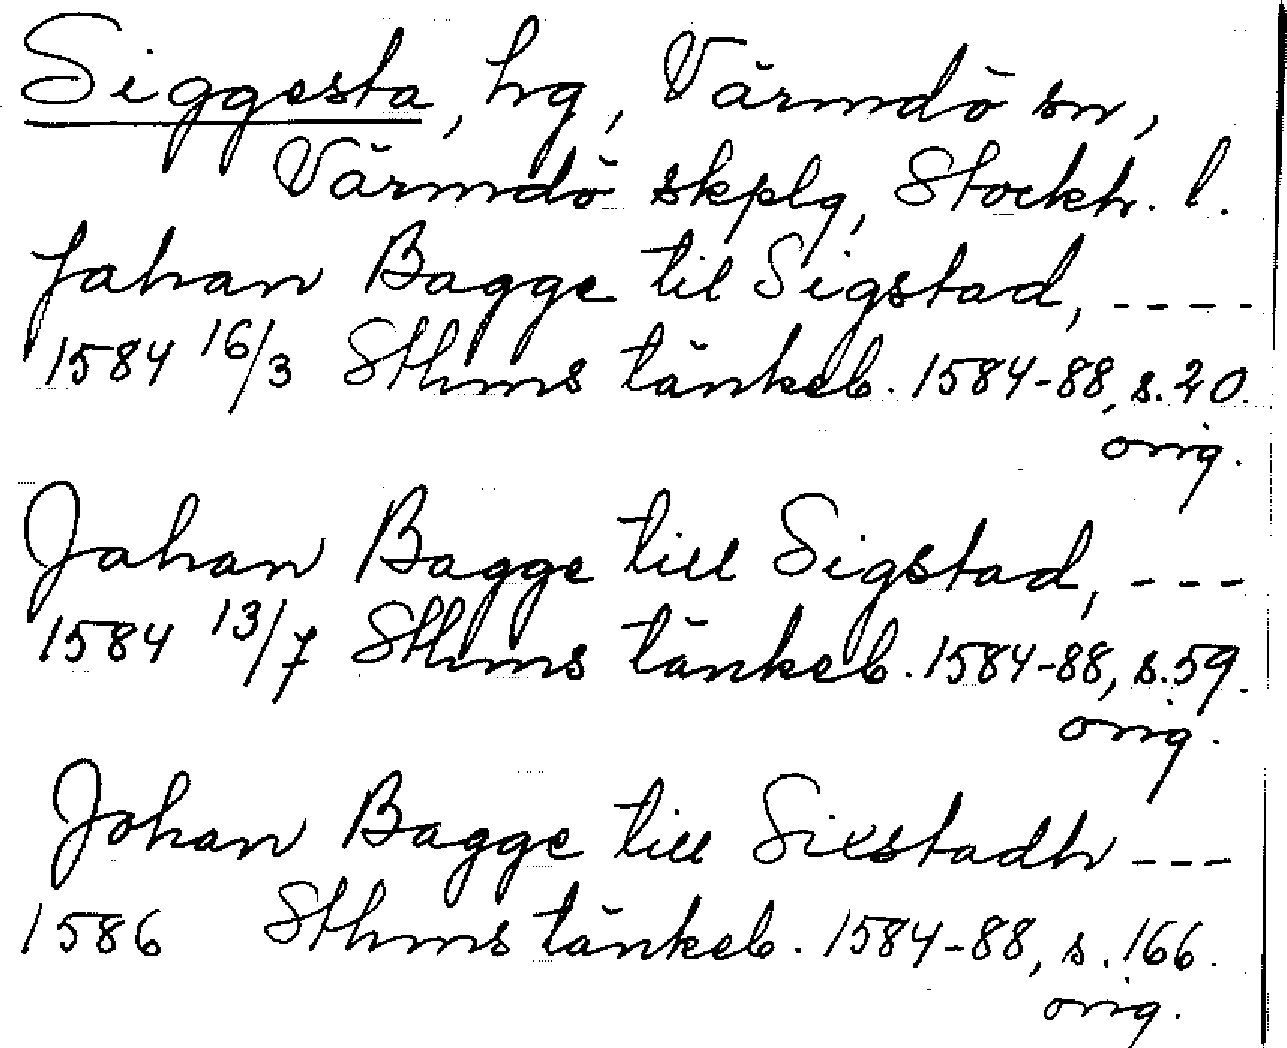 Siggesta, hg, Värmdö sn,
Värmdö skplg, Stockh. l.
Jahan Bagge til Sigstad, ----
1584 16/3 Sthms tänkeb. 1584-88, s. 20.
orig.
Jahan Bagge till Sigstad, ---
1584 13/7 Sthms tänkeb. 1584-88, s. 59.
orig.
Johan Bagge till Sixstadh ---
1586 Sthms tänkeb. 1584-88, s. 166.
orig.